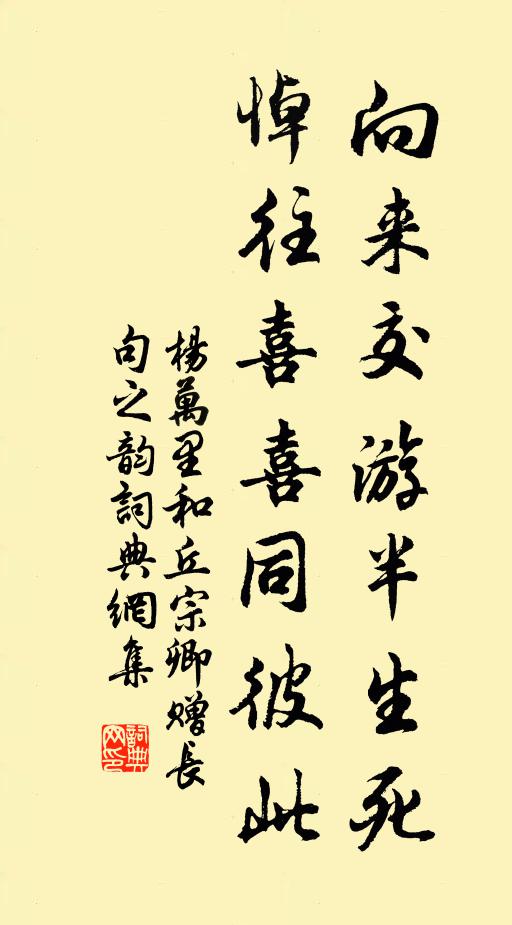 向来交游半生死
悼往喜喜同彼此
楊萬里和丘宗卿赠長
句之韵詞典網集
詞典网印